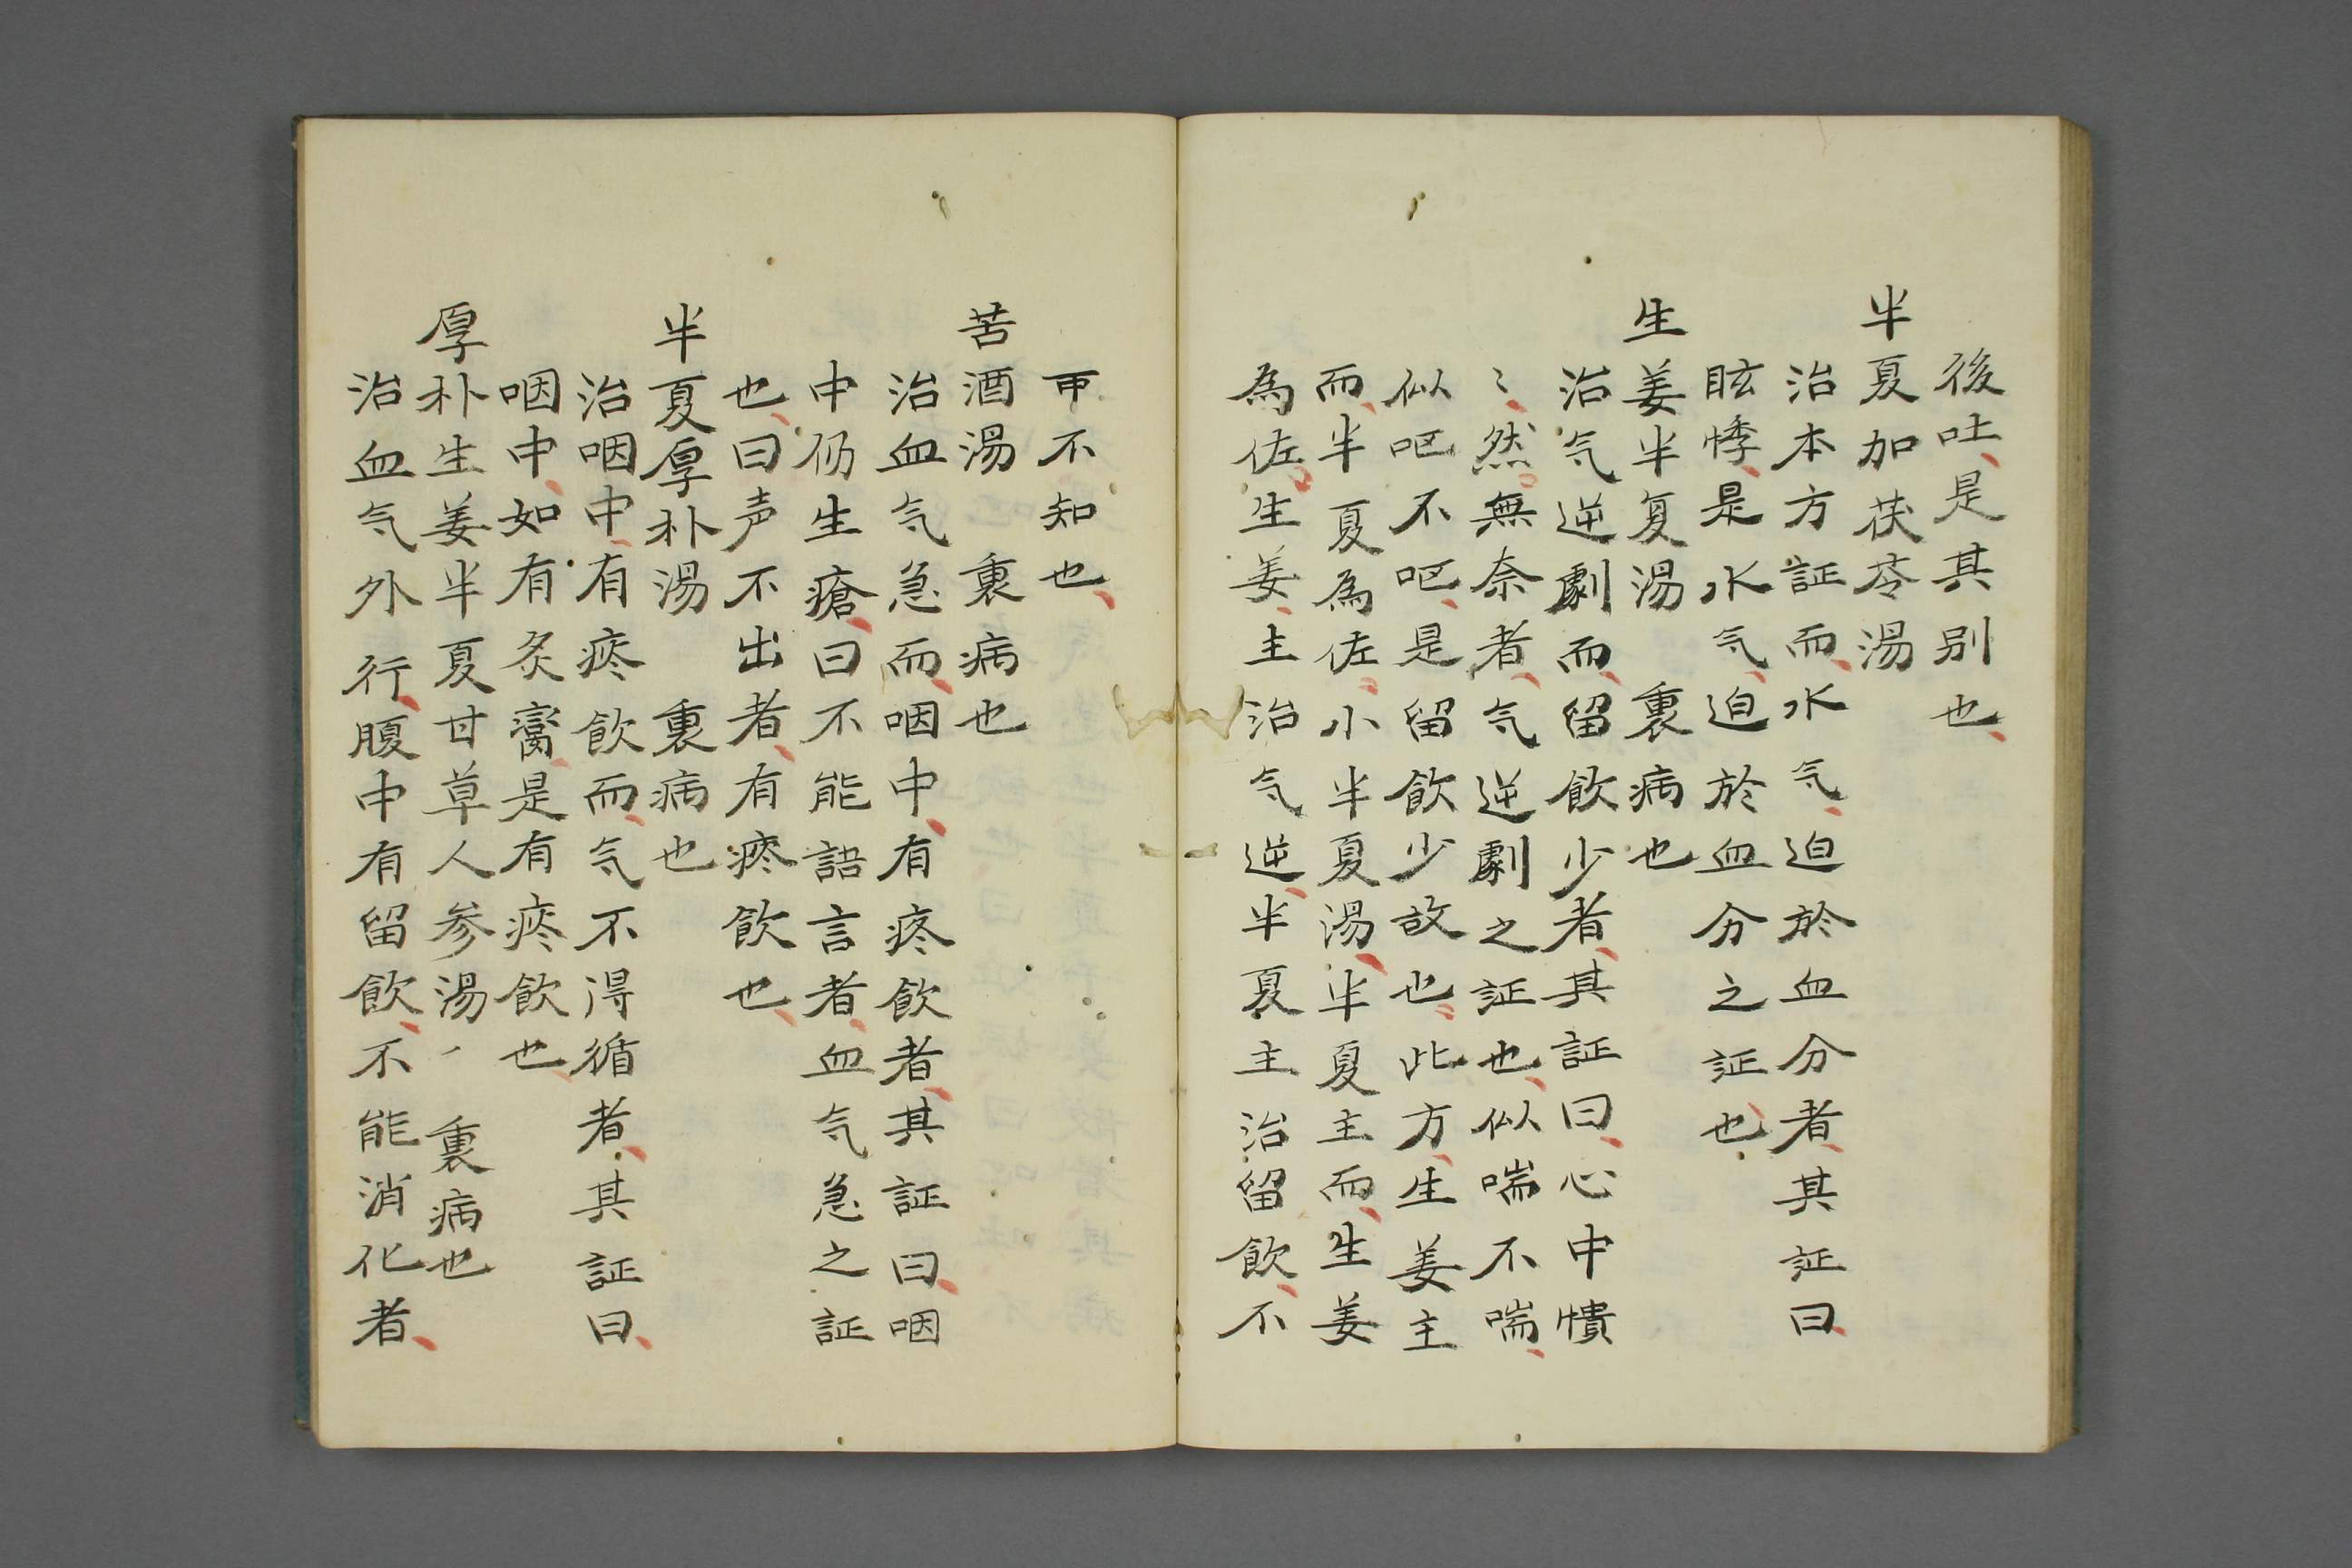 後吐、是其别也、
半夏加茯苓湯
治本方証而、水气、迫於血分者、其証曰、
眩悸、是水气、迫於血分之証也、
生姜半夏湯　裏病也
治气逆劇而、留飲少者、其証曰、心中憒
〻、然。無奈者、气逆劇之証也、似喘不喘、
似呕不呕、是留飲少故也、此方、生姜主
而、半夏為佐、小半夏湯、半夏主而、生姜
為佐、生姜、主治气逆、半夏主治留飲、不
可不知也、
苦酒湯　裏病也
治血气急而、咽中、有痰飲者、其証曰、咽
中仍生瘡、曰不能語言者、血气急之証
也、曰声不出者、有痰飲也、
半夏厚朴湯　裏病也
治咽中、有痰飲而、气不得循者、其証曰、
咽中、如有炙臠、是有痰飲也、
厚朴生姜半夏甘草人参湯　裏病也
治血气外行、腹中有留飲、不能消化者、